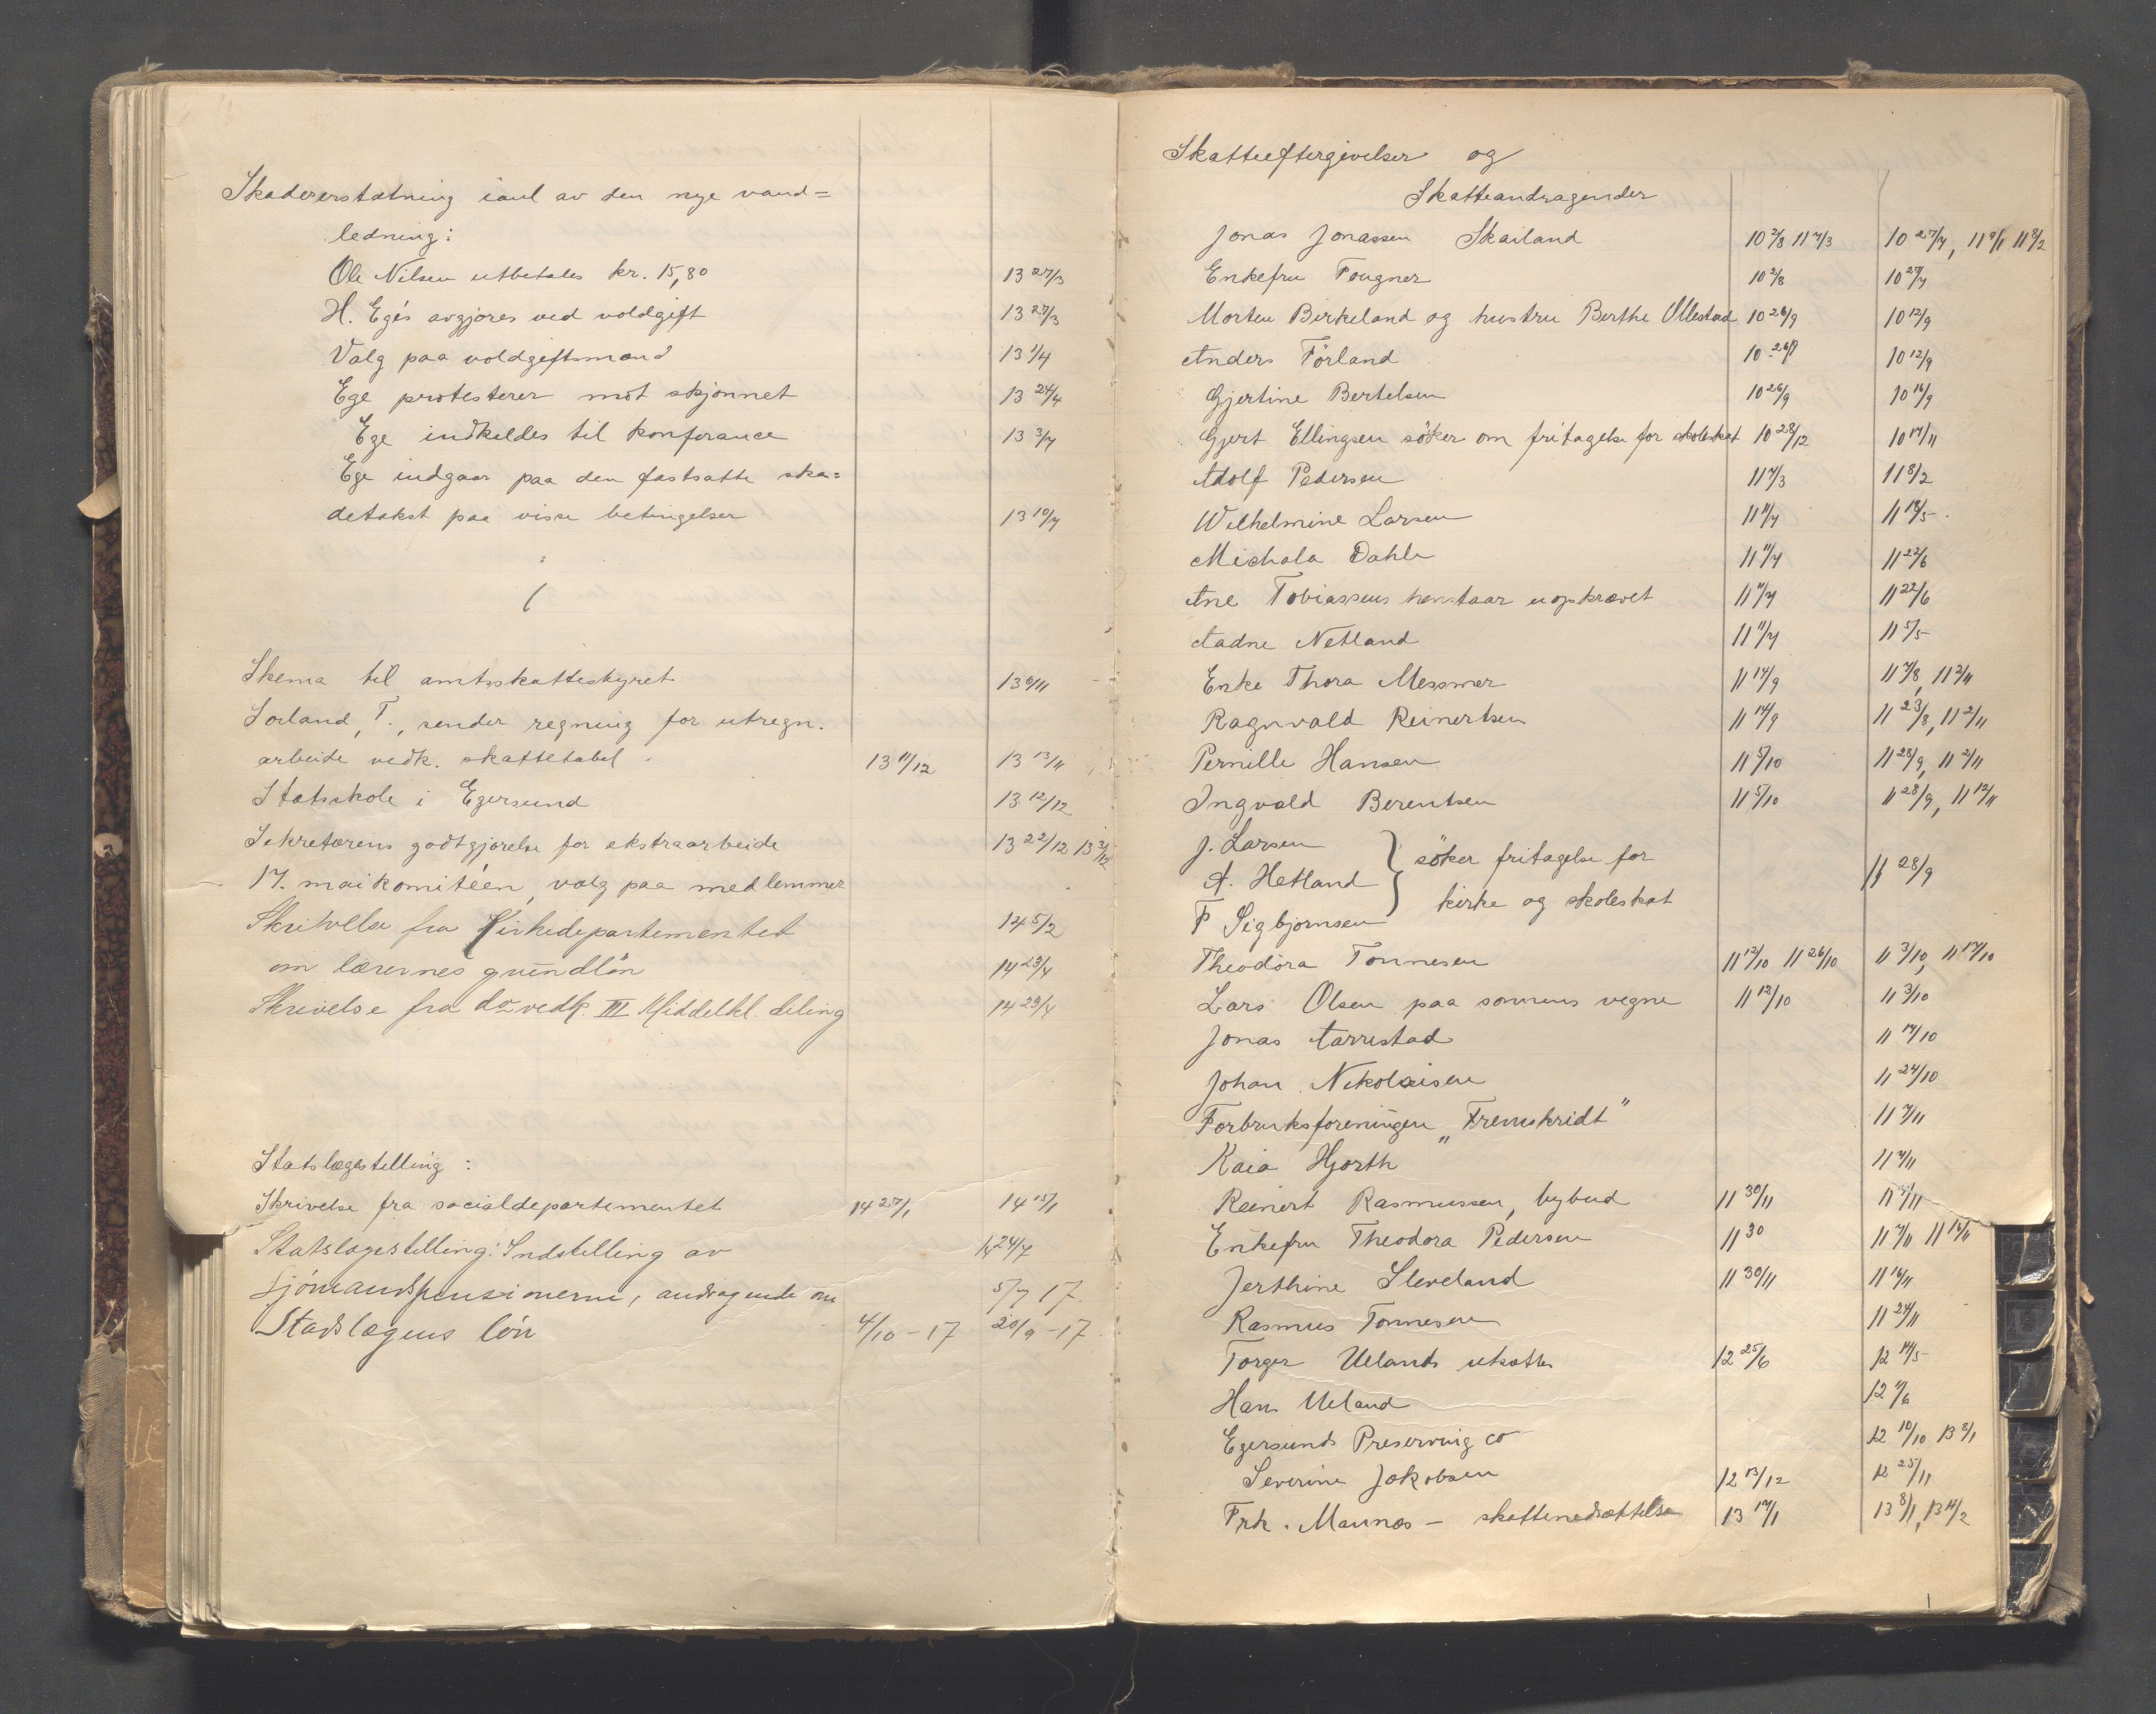 Skadeerstatning ianl av den nye vand=
ledning:
Ole Nilsen utbetales kr. 15,80 13 27/3
H. Ege's avgjøres ved voldgift 13 27/3
Valg paa voldgiftsmænd 13 1/4
Ege protesterer mot skjønnet 13 24/4
Ege indkaldes til konferance 13 3/7
Ege indgaar paa den fastsatte ska=
detakst paa visse betingelser 13 10/7
Skema til amtsskattestyret 13 6/11
Sørland, T., sender regning for utregn.
arbeide vedk. skattetabel. 13 11/12 13 13/11
Statsskole i Egersund 13 12/12
Sekretærens godtgjørelse for ekstraarbeide 13 22/12
17. maikomitéen, valg paa medlemmer
Skrivelse fra Kirkedepartementet 14 5/2
om lærernes grundlön 14 23/4
Skrivelse fra do vedk. III Middelkl. deling 14 23/4
Statslægestilling:
Skrivelse fra socialdepartementet 14 27/1 14 15/1
Statslægestilling: Indstilling av 14 24/7
Sjömandspensionerne, andragende om 5/7 17.
Stadslægens lön 4/10-17 20/9-17.
Skatteeftergivelser og
Skatteandragender
Jonas Jonassen Skailand 10 2/8 11 7/3 10 27/7, 11 9/1 11 8/2
Enkefru Fougner 10 2/8 10 27/7
Morten Birkeland og hustru Berthe Ollestad 10 26/9 10 12/9
Anders Förland 10 26/9 10 12/9
Gjertine Bertelsen 10 26/9 10 16/9
Gjert Ellingsen söker om fritagelse for skoleskat 10 28/12 10 17/11
Adolf Pedersen 11 7/3 11 8/2
Wilhelmine Larsen 11 11/7 11 18/5
Michala Dahle 11 11/7 11 22/6
Ane Tobiassens henstaar uopkrævet 11 11/7 11 22/6
Aadne Netland 11 11/7 11 5/5
Enke Thora Messmer 11 14/9 11 7/8, 11 2/11
Ragnvald Reinertsen 11 14/9 11 23/8, 11 2/11
Pernille Hansen 11 5/10 11 28/9, 11 2/11
Ingvald Berentsen 11 5/10 11 28/9, 11 12/11
J. Larsen
A. Hetland } söker fritagelse for 11 28/9
T Sigbjørnsen kirke og skoleskat
Theodora Tønnesen 11 12/10 11 26/10 11 3/10, 11 17/10
Lars Olsen paa sønnens vegne 11 12/10 11 3/10
Jonas Aarrestad 11 17/10
Johan Nikolaisen 11 24/10
Forbruksforeningen „Fremskridt" 11 7/11
Kaia Hjorth 11 7/11
Reinert Rasmussen, bybud 11 30/11 11 7/11
Enkefru Theodora Pedersen 11 30 11 7/11 11 16/11
Jerthine Sleveland 11 30/11 11 16/11
Rasmus Tønnesen 11 24/11
Torger Uelands utsættes 12 25/6 12 14/5
Hans Ueland 12 11/6
Egersunds Preserving Co 12 10/10 13 8/1
Severine Jakobsen 12 13/12 12 25/11
Frk. Maunæs - skattenedsættelse 13 17/1 13 8/1, 13 14/2